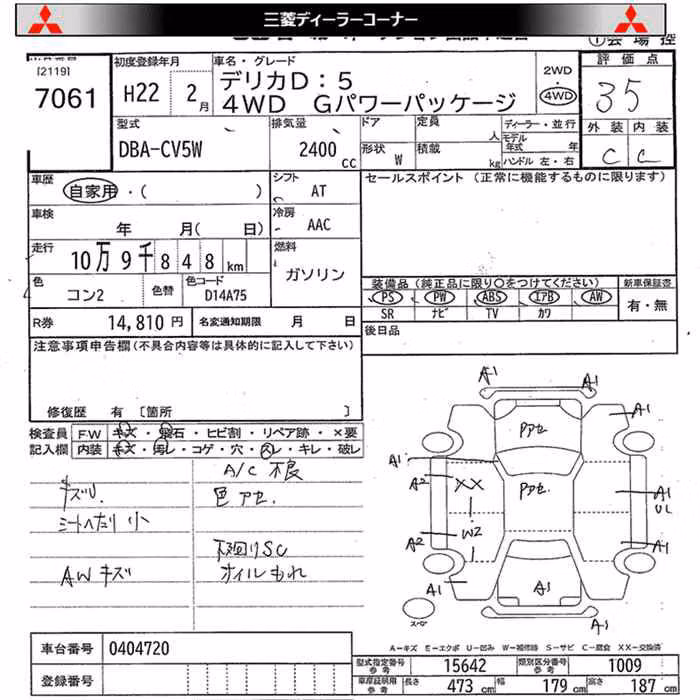 三菱ディーラーコーナー
①会場控
[2119]
7061
初度登録年月
H22 2月
車名・グレード
デリカD:5
4WD Gパワーパッケージ
2WD
4WD
評価点
35
外装 内装
C C
型式
DBA-CV5W
排気量
2400 cc
ドア
形状 W
定員 人
積載 kg
ディーラー・並行
モデル年式 年
ハンドル 左・右
車歴
自家用・( )
シフト
AT
車検
年 月( 日)
冷房
AAC
走行
10万9千848 km
燃料
ガソリン
色
コン2
色替
色コード
D14A75
R券 14,810円
名変通知期限 月 日
セールスポイント (正常に機能するものに限ります)
装備品 (純正品に限り○をつけてください)
PS PW ABS エアB AW
SR ナビ TV カワ
新車保証書
有・無
後日品
注意事項申告欄(不具合内容等は具体的に記入して下さい)
修復歴 有 [箇所 ]
検査員記入欄
FW キズ・飛石・ヒビ割・リペア跡・×要
内装 キズ・汚レ・コゲ・穴・スレ・キレ・破レ
A/C 不良
キズU.
色アセ.
シートへたり 小
下回りSC
AWキズ
オイルもれ
A1 A1
A1
Pアセ
A1
A2 XX
Pアセ.
A1
UL
A2 W2
A1
A1
A1
スペア
A-キズ E-エクボ U-凹み W-補修跡 S-サビ C-腐食 XX-交換済
車台番号 0404720
登録番号
型式指定番号 参考 15642
類別区分番号 参考 1009
車庫証明用 参考 長さ 473 cm 幅 179 cm 高さ 187 cm